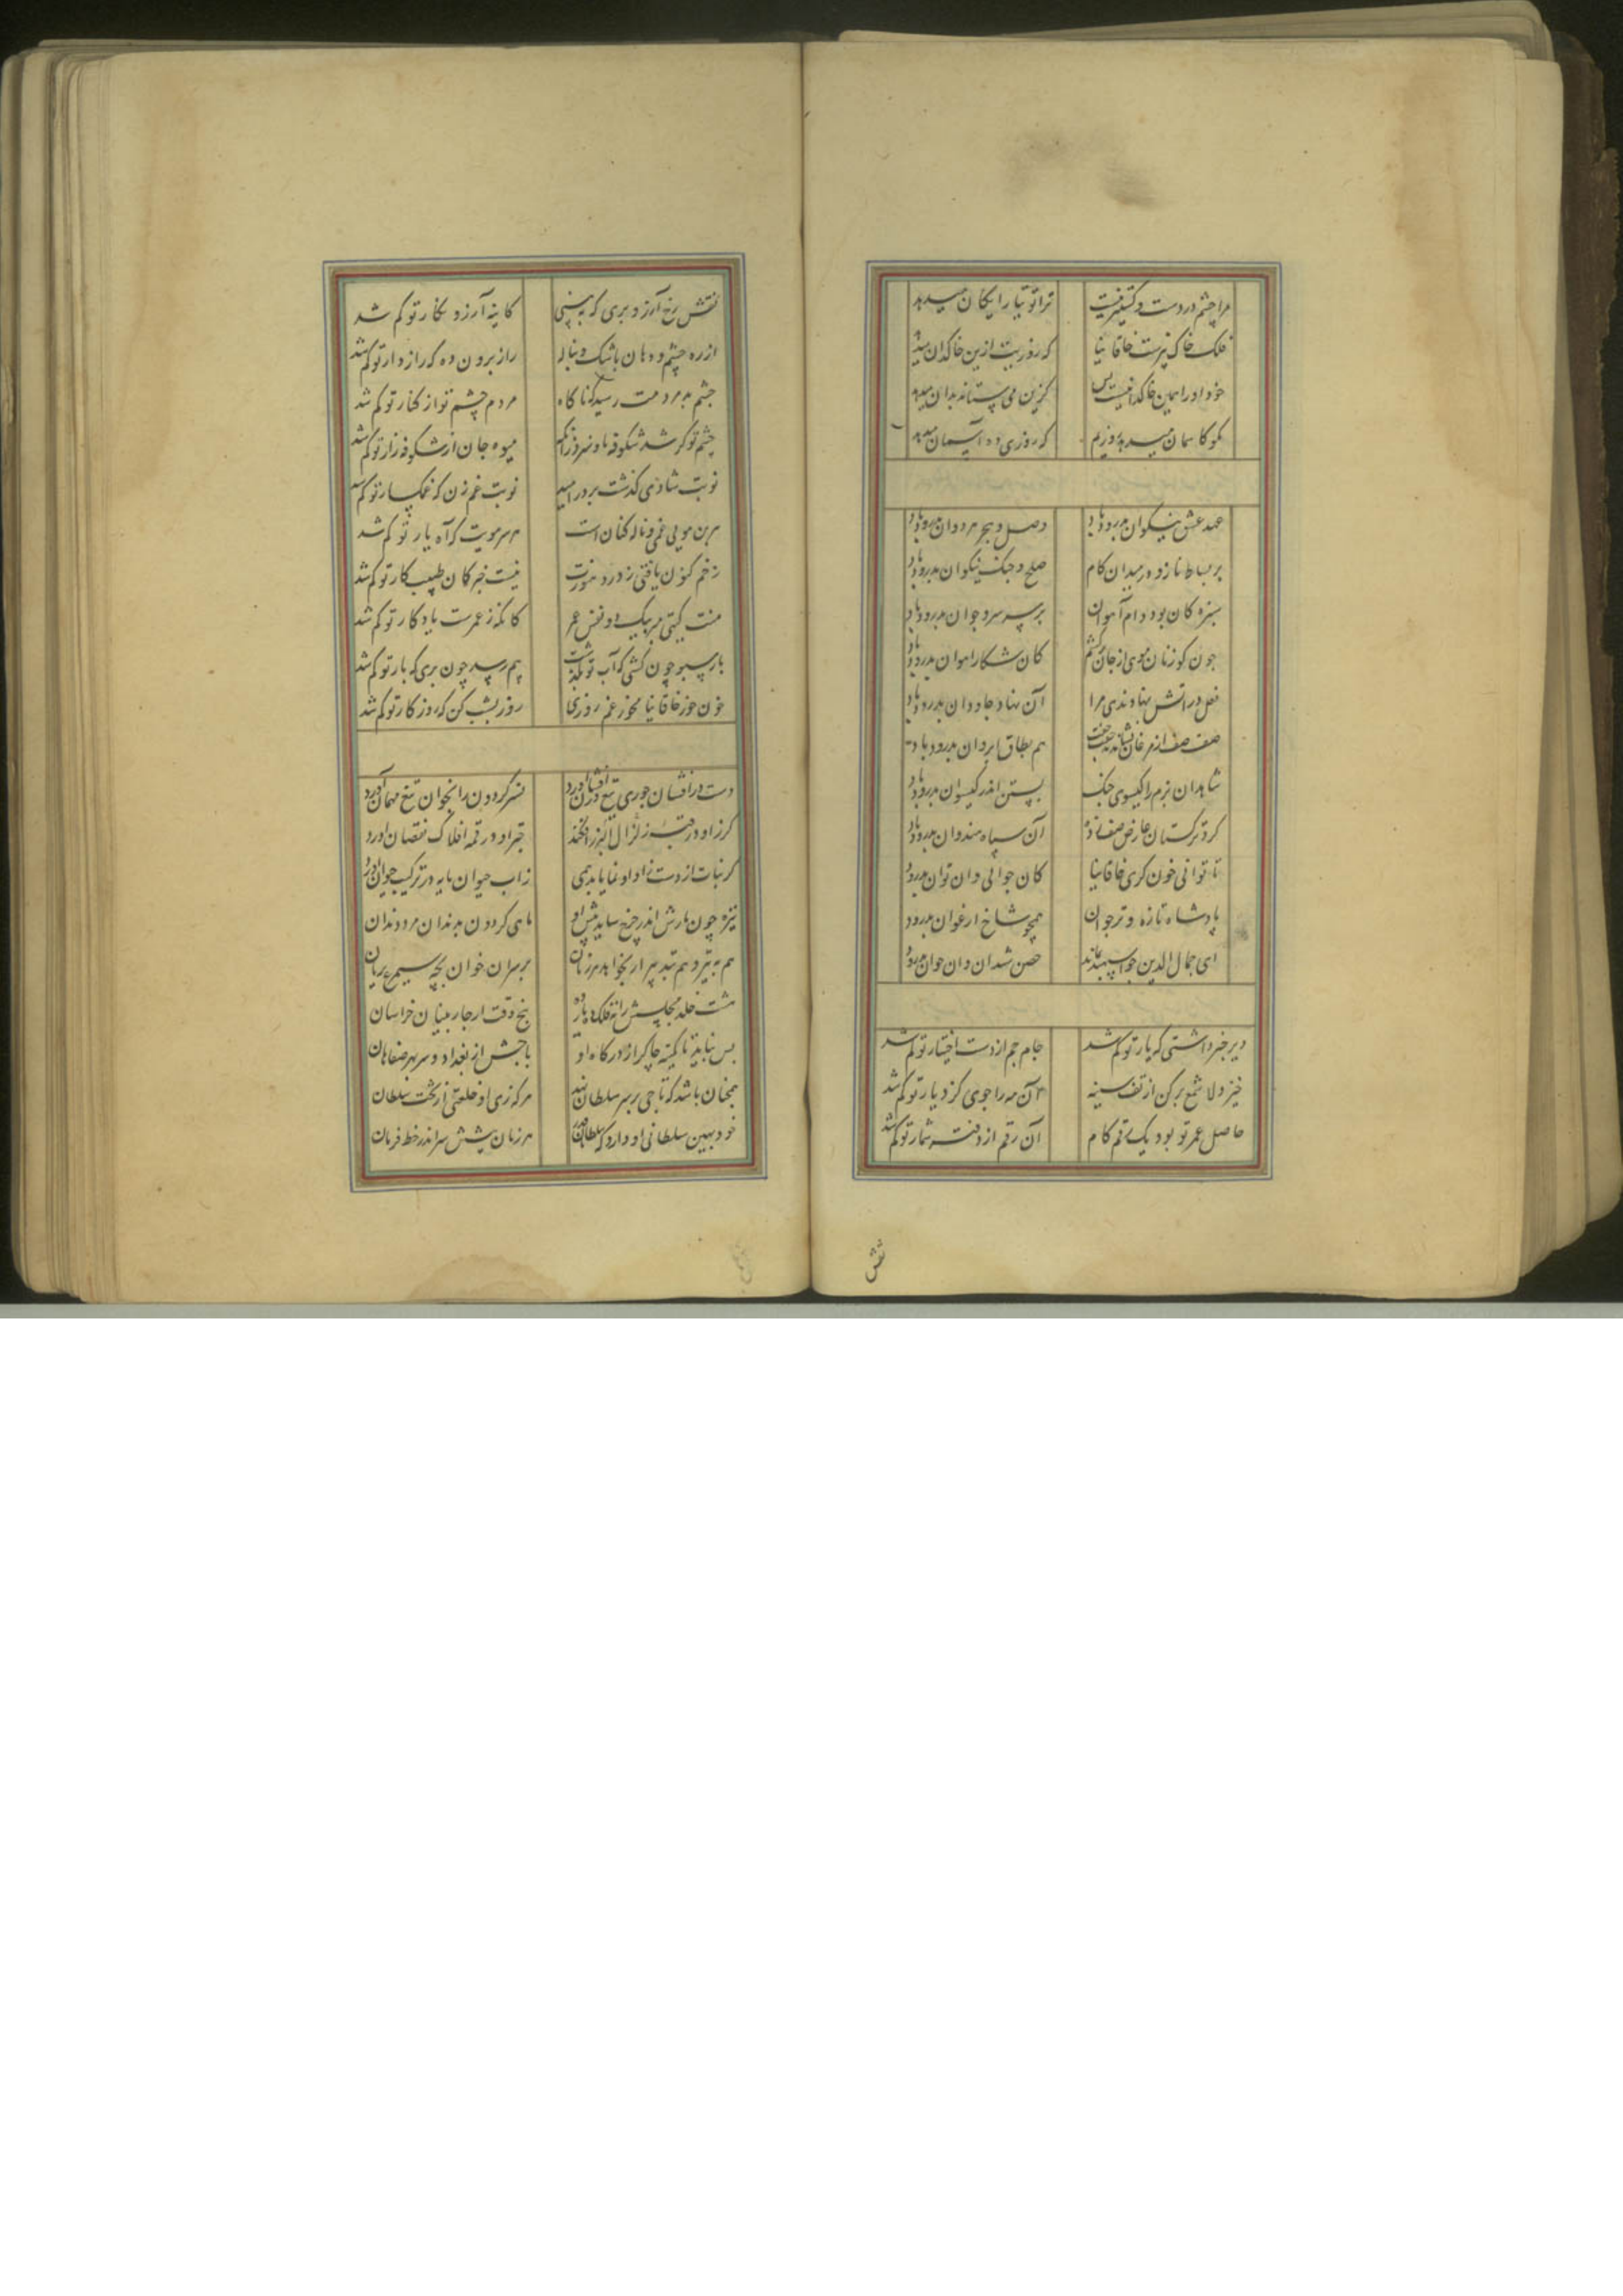 مرا چشم دردست و کشنیز نیست ترا توتیا رایگان میدهد
فلک خاک بیزست خاقانیا که روزیت ازین خاکدان میدهد
خود او را همین خاکدانیست پس کزین می ستاند بدان میدهد
مگو کاسمان میدهد روزیم که روزی ده آسمان میدهد
عهد عشق نیکوان بدرود باد وصل و هجر هر دوان بدرود باد
بر بساط ناز و در میدان کام صلح و جنک نیکوان بدرود باد
سبزه کان بود دام آهوان بر سر سرو جوان بدرود باد
چون کوزنان هوی از جان برکشم کان شکار آهوان بدرود باد
نعل در آتش نهاوندی مرا آن نهاد جاودان بدرود باد
صف صف از مرغان نشاند جفت جفت هم بطاق ابروان بدرود باد
شاهدان بزم را کیسوی چنک بستن اندر کیسوان بدرود باد
کرد ترکستان عارض صف زده آن سپاه هندوان بدرود باد
ناتوانی خون کری خاقانیا کان جوانی وان توان بدرود
پادشاه تازه و تر جوان همچو شاخ ارغوان بدرود
ای جمال الدین جو اسپهبد نماند حصن شندان وان جوان بدرود
دیر خبر داشتی که یار تو کم شد جام جم از دست اختیار تو کم شد
خیز دلا شمع برکن از تف سینه آن مه را جوی کز دیار تو کم شد
حاصل عمر تو بود یک رقم کام آن رقم از دفتر شمار تو کم شد
نقش
نقش رخ آرزو بری که ببینی کاینه آرزو نکار تو کم شد
از ره چشم و دهان باشک و بناله راز برون ده که رازدار تو کم شد
چشم بد مردمت رسید که ناکاه مردم چشم تو از کنار تو کم شد
چشم تو کر شد شکوفه بار سزد زانک میوه جان از شکوفه زار تو کم شد
نوبت شادی کذشت بر در امید نوبت غم زن که غمکسار تو کم شد
هر بن مویی غمی و ناله کنان است هر سر مویت که آه یار تو کم شد
زخم کنون یافتی ز درد هنوزت نیست خبر کان طبیب کار تو کم شد
منت کیتی مبر بیک دو نفس عمر کانکه ز عمرت یادکار تو کم شد
بار سبو چون کشی که آب تو بکذشت بیم رسد چون بری که بار تو کم شد
خون خور خاقانیا مخور غم روزی روز بشب کن که روزکار تو کم شد
دست درافشان چو زی تیغ درفشان آورد نسر کردون را بخوان تیغ مهمان آورد
کرز او در قلب زلزال البرز افکند تیر او در قمه افلاک نقصان آورد
کر نبات از دست راد او نما یابد همی زآب حیوان مایه در ترکیب حیوان آورد
نیزه چون مارش اندر چرخ ساید نیش او ماهی کردون بدندان مزد دندان
هم به تیر و هم بتدبیر ار بخواهد هر زمان بر سران خوان بچه سیمرغ بریان
هشت خلد مجلسش را نه فلک ده یار پنج وقت ار چار بنیان خراسان
بس نیاید تا کمینه چاکر از درکاه او باجش از بغداد و سربهر صفاهان
همچنان باشد که تاجی بر سر سلطان نهد هر که زی او خلعتی از تخت سلطان
خود بهین سلطانی او دارد که سلطان هدی هر زمان پیشش سر اندر خط فرمان